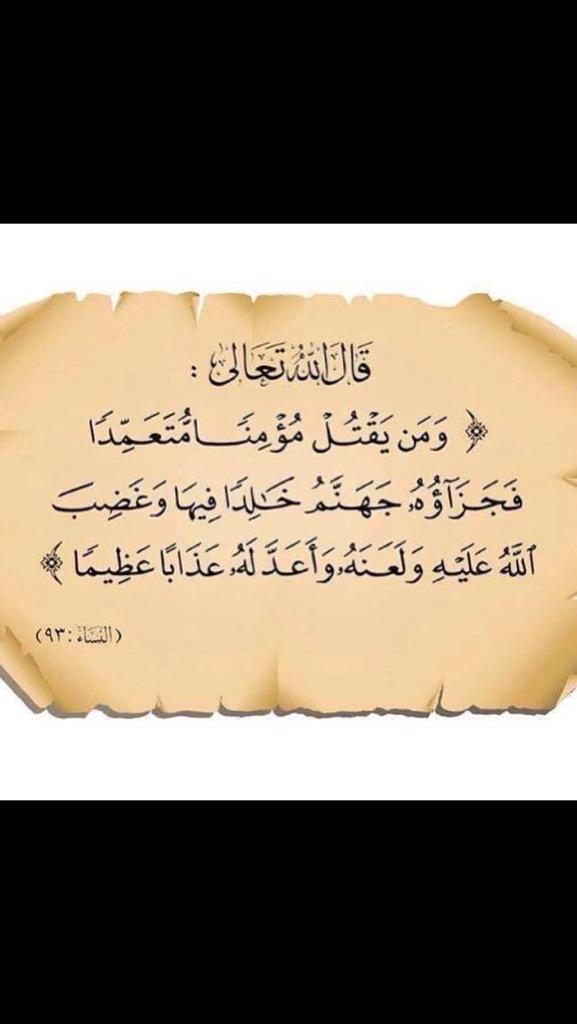 قَالَ اللهُ تَعَالَى :
﴿ وَمَن يَقْتُلْ مُؤْمِنًا مُّتَعَمِّدًا
فَجَزَآؤُهُۥ جَهَنَّمُ خَٰلِدًا فِيهَا وَغَضِبَ
ٱللَّهُ عَلَيْهِ وَلَعَنَهُۥ وَأَعَدَّ لَهُۥ عَذَابًا عَظِيمًا ﴾
(النِّسَاء : ٩٣)